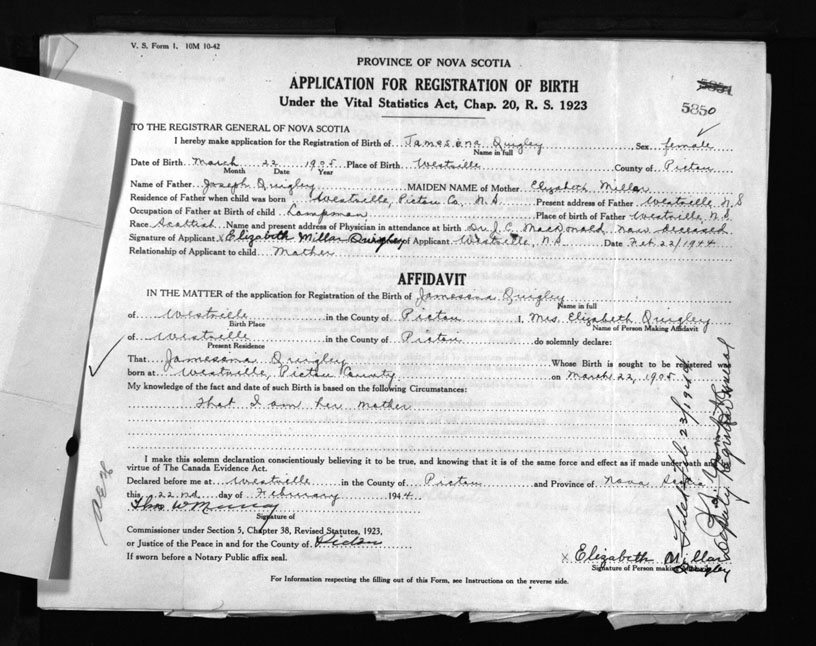 V. S. Form 1. 10M 10-42
PROVINCE OF NOVA SCOTIA
APPLICATION FOR REGISTRATION OF BIRTH
Under the Vital Statistics Act, Chap. 20, R. S. 1923
5851
5850
TO THE REGISTRAR GENERAL OF NOVA SCOTIA
I hereby make application for the Registration of Birth of Jamesena Quigley Sex female
Name in full
Date of Birth March 22 1905 Place of Birth Westville County of Pictou
Month Date Year
Name of Father Joseph Quigley MAIDEN NAME of Mother Elizabeth Millar
Residence of Father when child was born Westville, Pictou Co, N.S. Present address of Father Westville N.S
Occupation of Father at Birth of child Lampman Place of birth of Father Westville, N.S.
Race Scottish Name and present address of Physician in attendance at birth Dr. J. C. MacDonald now deceased
Signature of Applicant x Elizabeth Millar Quigley of Applicant Westville, N.S. Date Feb 22/1944
Relationship of Applicant to child Mother
AFFIDAVIT
IN THE MATTER of the application for Registration of the Birth of Jamesena Quigley
Name in full
of Westville in the County of Pictou I, Mrs. Elizabeth Quigley
Birth Place Name of Person Making Affidavit
of Westville in the County of Pictou do solemnly declare:
Present Residence
That Jamesena Quigley Whose Birth is sought to be registered was
born at Westville, Pictou County on March 22, 1905
My knowledge of the fact and date of such Birth is based on the following Circumstances:
That I am her mother
I make this solemn declaration conscientiously believing it to be true, and knowing that it is of the same force and effect as if made under oath and
virtue of The Canada Evidence Act.
Declared before me at Westville in the County of Pictou and Province of Nova Scotia
this 22nd day of February 1944
Thos W Murray
Signature of
Commissioner under Section 5, Chapter 38, Revised Statutes, 1923,
or Justice of the Peace in and for the County of Pictou
If sworn before a Notary Public affix seal.
x Elizabeth Millar
Quigley
Signature of Person making
For Information respecting the filling out of this Form, see Instructions on the reverse side.
Filed Feb 23/1944
Deputy Registrar General